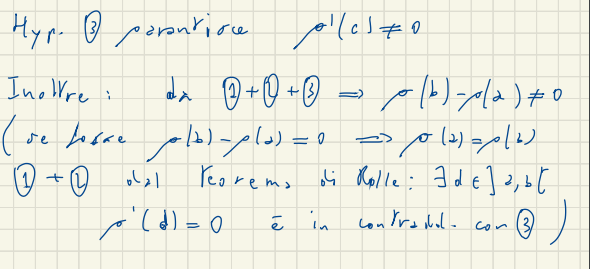 Hyp. ③ garantisce g'(c) ≠ 0
Inoltre : da ①+②+③ ⟹ g(b)-g(a) ≠ 0
(se fosse g(b)-g(a) = 0 ⟹ g(a) = g(b)
①+② dal teorema di Rolle: ∃ d ∈ ]a,b[
g'(d) = 0 è in contradd. con ③ )